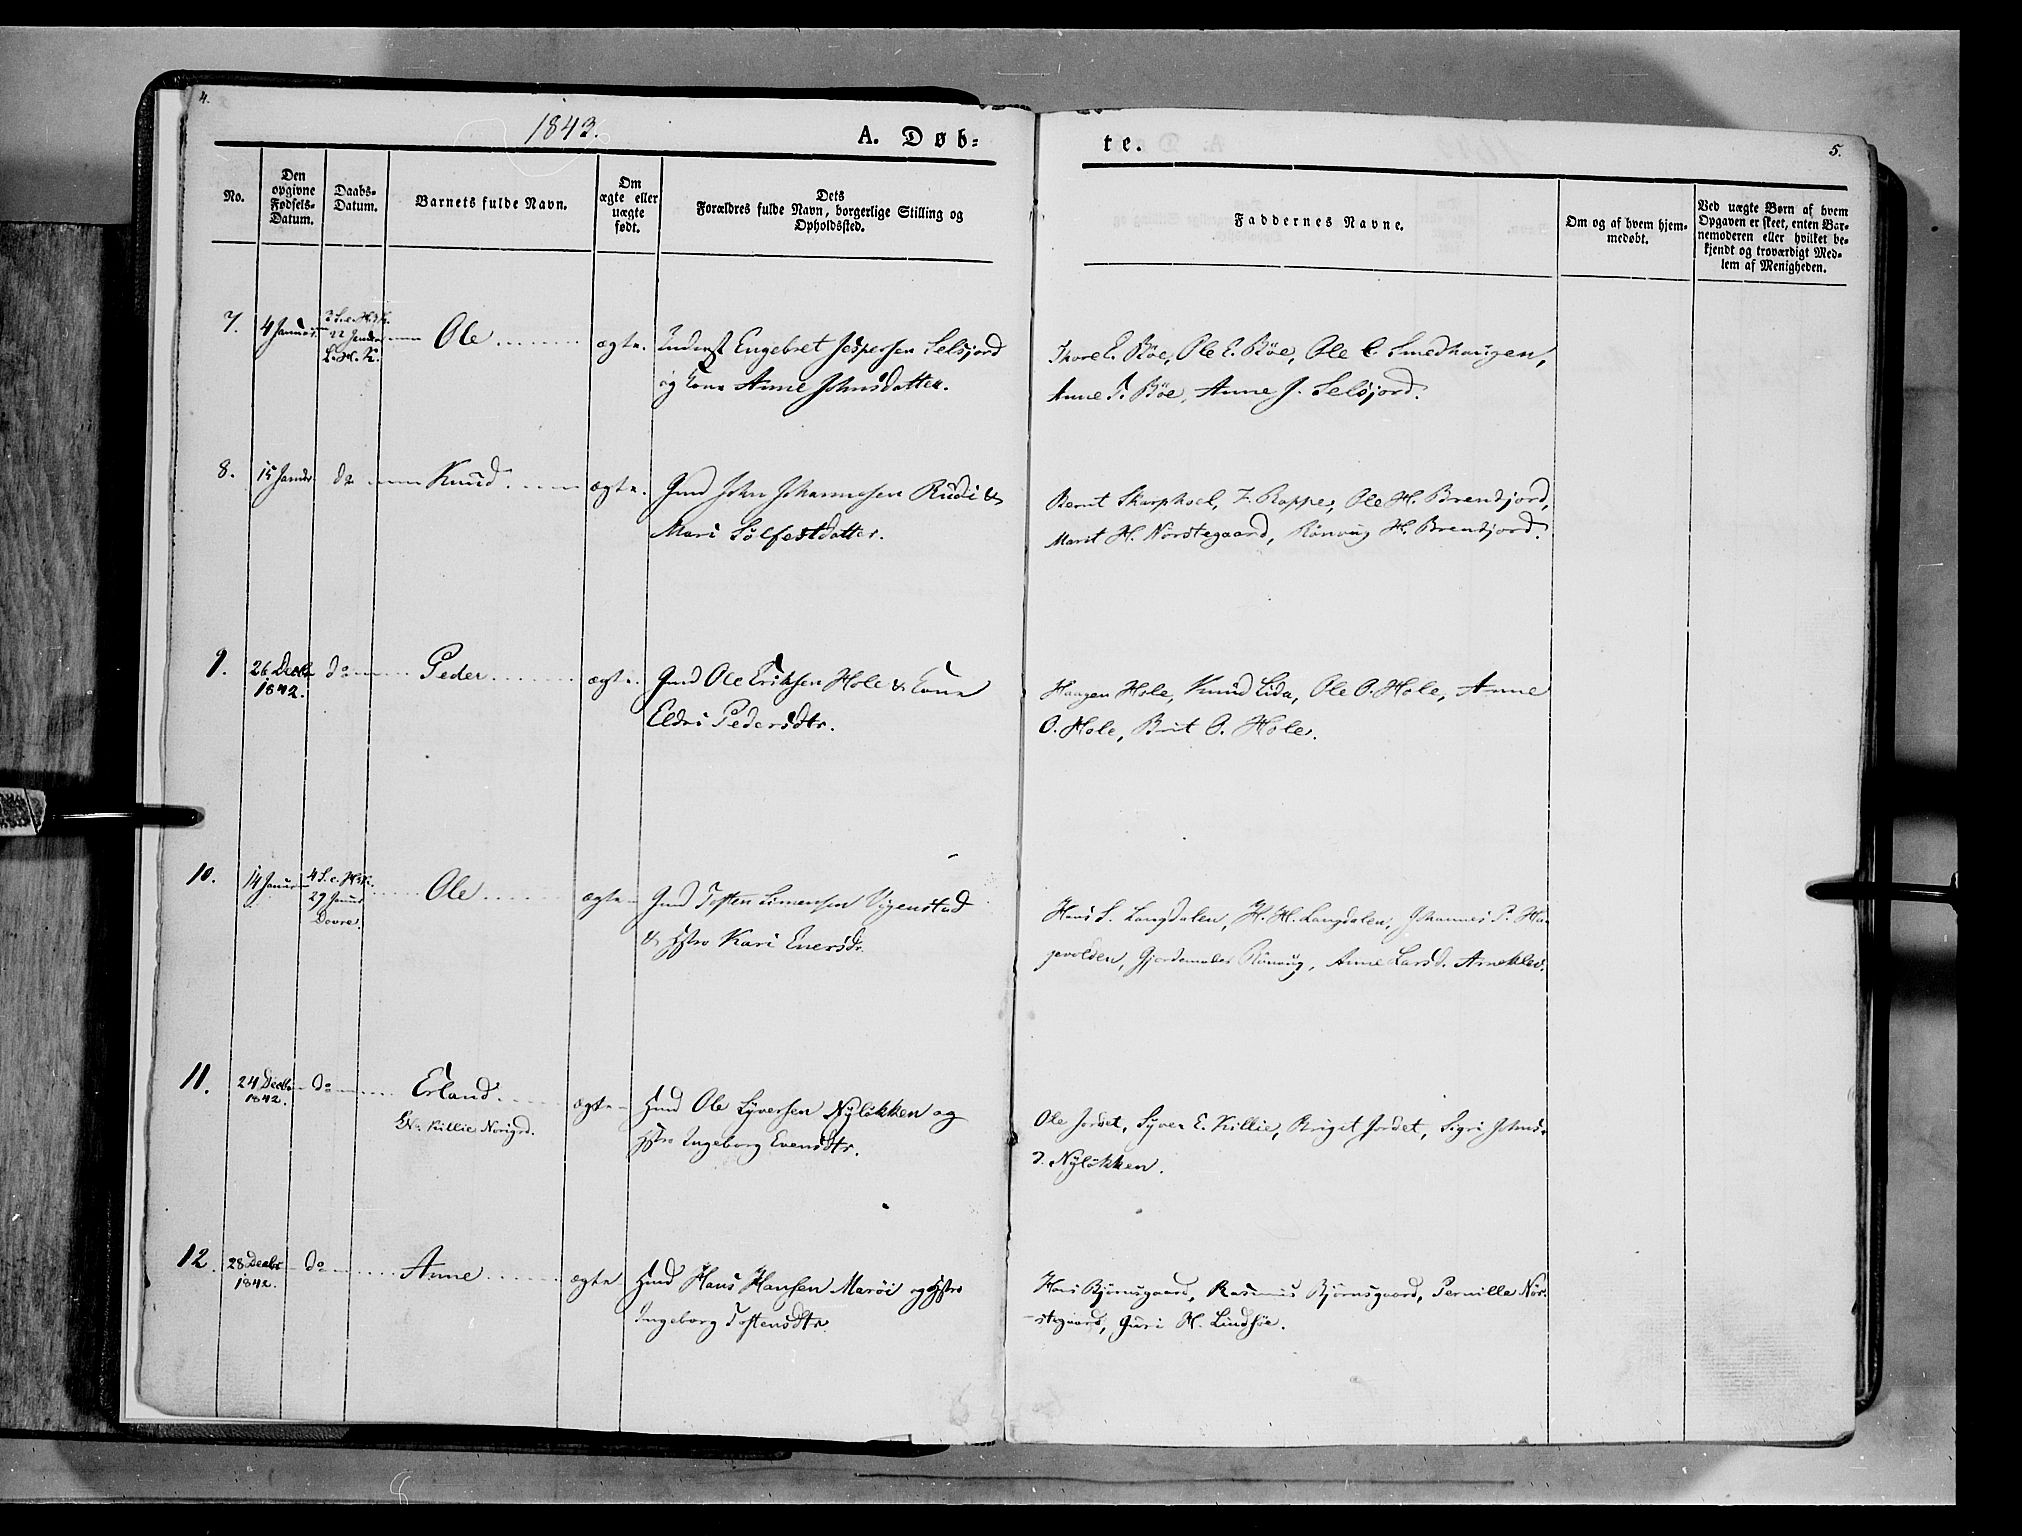 4.
1843.
A. Døb-
te.
5.
No.
Den
opgivne
Fødsels-
Datum.
Daabs-
Datum.
Barnets fulde Navn.
Om
ægte eller
uægte
født.
Dets
Forældres fulde Navn, borgerlige Stilling og
Opholdssted.
Faddernes Navne.
Om og af hvem hjem-
medøbt.
Ved uægte Børn af hvem
Opgaven er skeet, enten Bar-
nemoderen eller hvilket be-
kjendt og troværdigt Med-
lem af Menigheden.
7. 4 Januar Ole ægte. Inderst Engebret Jespersen Selsjord
og Kone Anne Johnsdatter.
Thore E. Böe, Ole E. Böe, Ole C. Smedhaugen,
Anne T. Böe, Anne J. Selsjord.
8. 15 Januar do Knud ægte. Gmd John Johannesen Rudi &
Mari Sølfestdatter.
Bernt Skarphoel, Ole H. Brendjord,
Marit H. Norstegaard, Rönnoug H. Brendjord.
9. 26 Decbr do Peder ægte. Gmd Ole Eriksen Hole & Kone
1842.
Eldri Pedersdtr.
Haagen Hole, Knud Lida, Ole O. Hole, Anne
O. Hole, Brit O. Hole.
10. 14 Januar 4 S. e. H3K. Ole ægte Gmd Tosten Simensen Vigenstad
29 Januar
Dovre.
& Hstro Kari Enersdr.
Hans S. Langdalen, H. H. Langdalen, Johannes P. Ha-
gevolden, Gjordemoder Rönnoug, Anne Larsd. Arneklev.
11. 24 Decbr do Erland. ægte Hmd Ole Syversen Nyløkken og
1842.
Killie Norigrd.
Hstro Ingeborg Evensdtr.
Ole Jordet, Syver E. Killie, Brigit Jordet, Sigri Johns-
d. Nyløkken.
12. 28 Decbr do Anne ægte Hmd Hans Hansen Maröi og Hstro
1842.
Ingeborg Tostensdtr.
Hans Bjørnsgaard, Rasmus Bjørnsgaard, Pernille Nor-
stegaard, Guri H. Lindsöe.
8